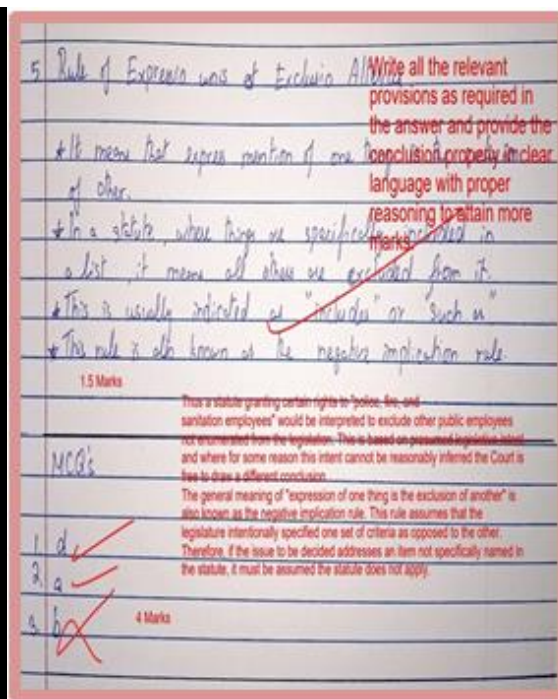 5 Rule of Expressio unis et Exclusio
Write all the relevant
provisions as required in
the answer and provide the
conclusion properly in clear
language with proper
reasoning to attain more
marks.
* It means that express mention of one
of other.
* In a statute, where things are specifically included in
a list, it means all others are excluded from it.
* This is usually indicated as "includes" or "such as"
* This rule is also known as the negative implication rule.
1.5 Marks
Thus a statute granting certain rights to "police, fire, and
sanitation employees" would be interpreted to exclude other public employees
not enumerated from the legislation. This is based on presumed legislative intent
and where for some reason this intent cannot be reasonably inferred the Court is
free to draw a different conclusion.
The general meaning of "expression of one thing is the exclusion of another" is
also known as the negative implication rule. This rule assumes that the
legislature intentionally specified one set of criteria as opposed to the other.
Therefore, if the issue to be decided addresses an item not specifically named in
the statute, it must be assumed the statute does not apply.
MCQ's
1. d
2. a
3. b
4 Marks